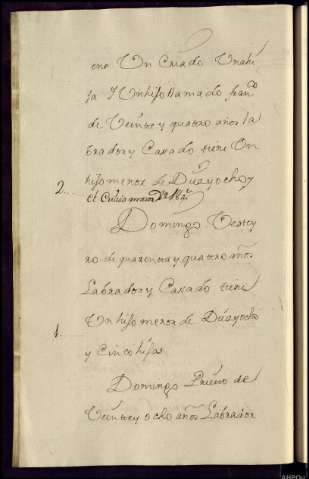 ene Un Criado Una hi
ja Y Un hijo llamado fran.co
de Veinte y quatro años la
brador y Casado tiene Un
2 hijo menor de Diez y ocho y
el Criado maior de 18 a.s
Domingo
ro de quarenta y quatro añ.s
Labrador y Casado tiene
1 Un hijo menor de Diez y ocho
y Cinco hijas
Domingo Prieto de
Veinte y ocho años Labrador
AHPOU